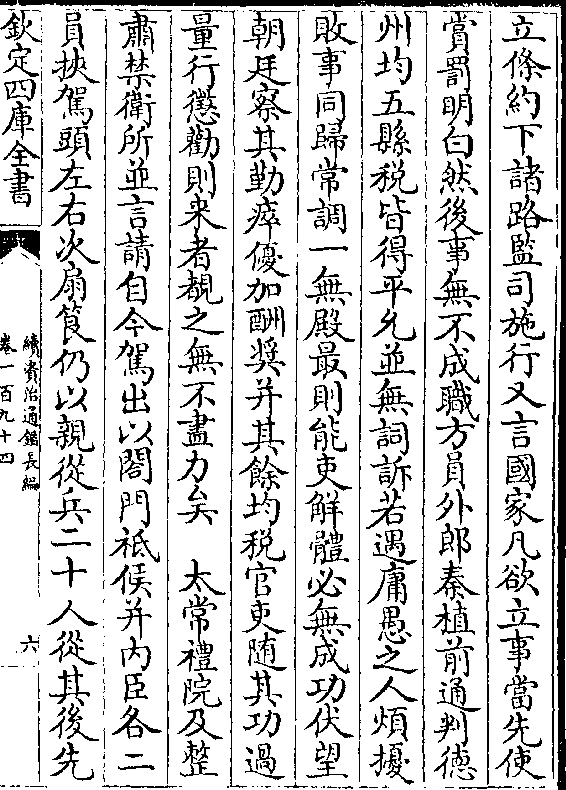 立條約下諸路監司施行又言國家凡欲立事當先使
賞罰明白然後事無不成職方員外郎秦植前通判德
州均五縣税皆得平允並無詞訴若遇庸愚之人煩擾
敗事同歸常調一無殿最則能吏解體必無成功伏望
朝廷察其勤瘁優加酬奨并其餘均税官吏随其功過
量行懲勸則来者覩之無不盡力矣　太常禮院及整
肅禁衛所並言請自今駕出以閤門祗候并内臣各二
員挾駕頭左右次扇筤仍以親從兵二十人從其後先
欽定四庫全書
續資治通鑑長編
卷一百九十四
六